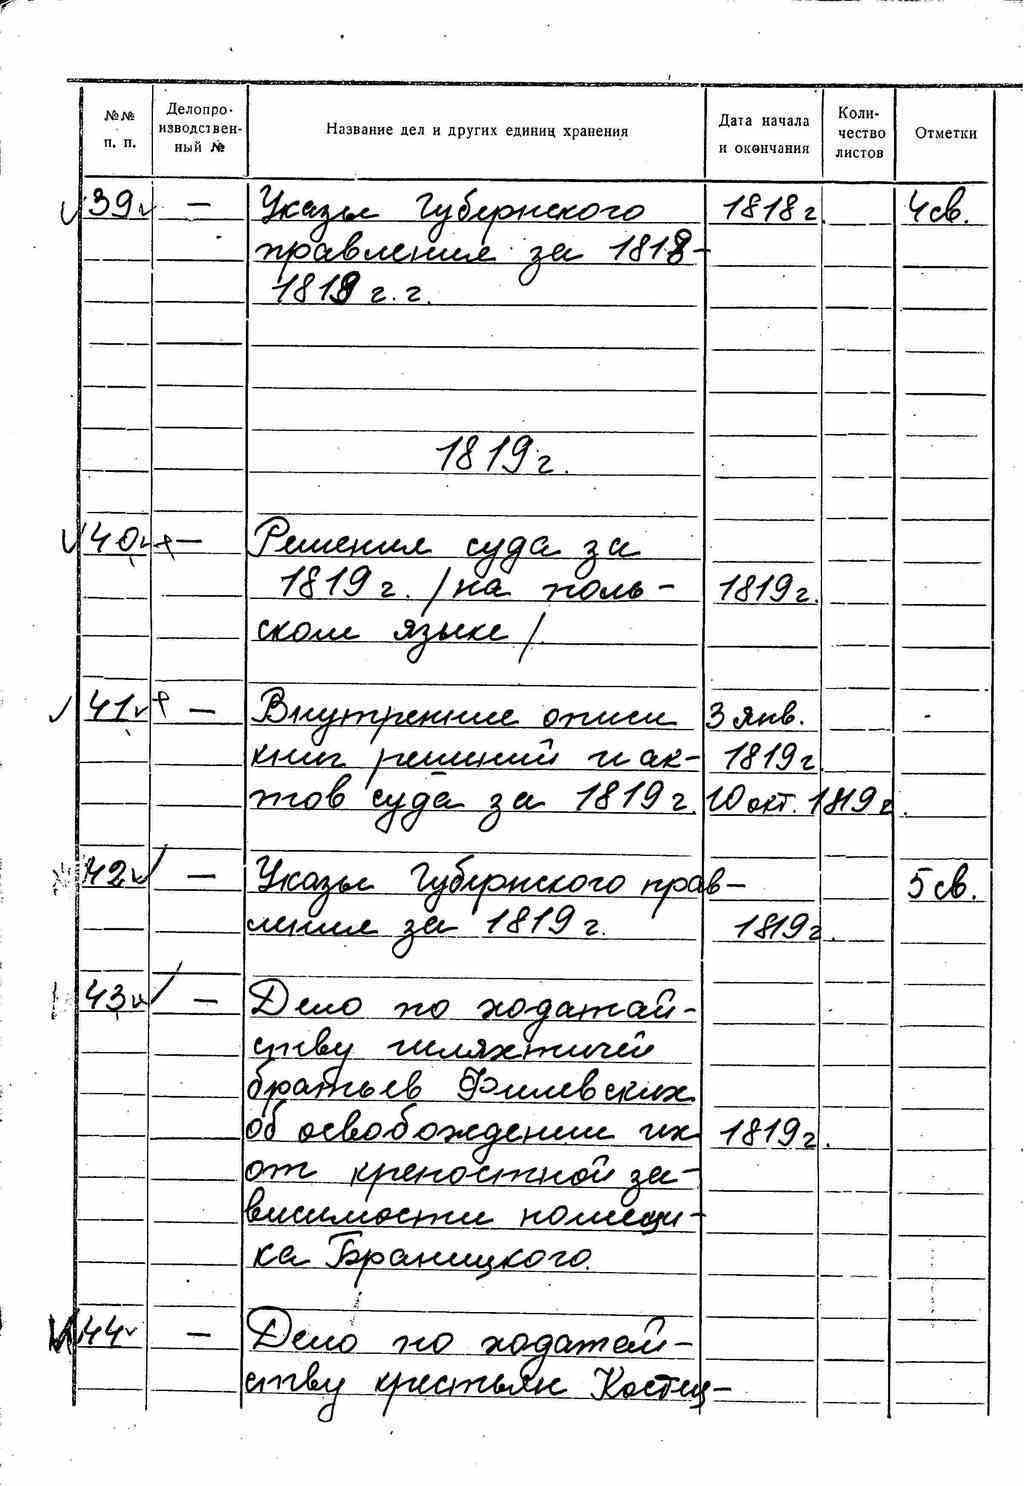 №№ п. п. Делопро- изводствен- ный № Название дел и других единиц хранения Дата начала и окончания Коли- чество листов Отметки
39 — Указы Губернского 1818 г. 4 св.
правления за 1818-
1819 г. г.
1819 г.
40 + — Решения суда за
1819 г. /на поль- 1819 г.
ском языке/.
41 + — Внутренние описи 3 янв.
книг решений и ак- 1819 г.
тов суда за 1819 г. 10 окт. 1819 г.
42 — Указы Губернского прав- 5 св.
ления за 1819 г. 1819 г.
43 — Дело по ходатай-
ству шляхтичей
братьев Филевских
об освобождении их 1819 г.
от крепостной за-
висимости помещи-
ка Браницкого.
44 — Дело по ходатай-
ству крестьян Костец-